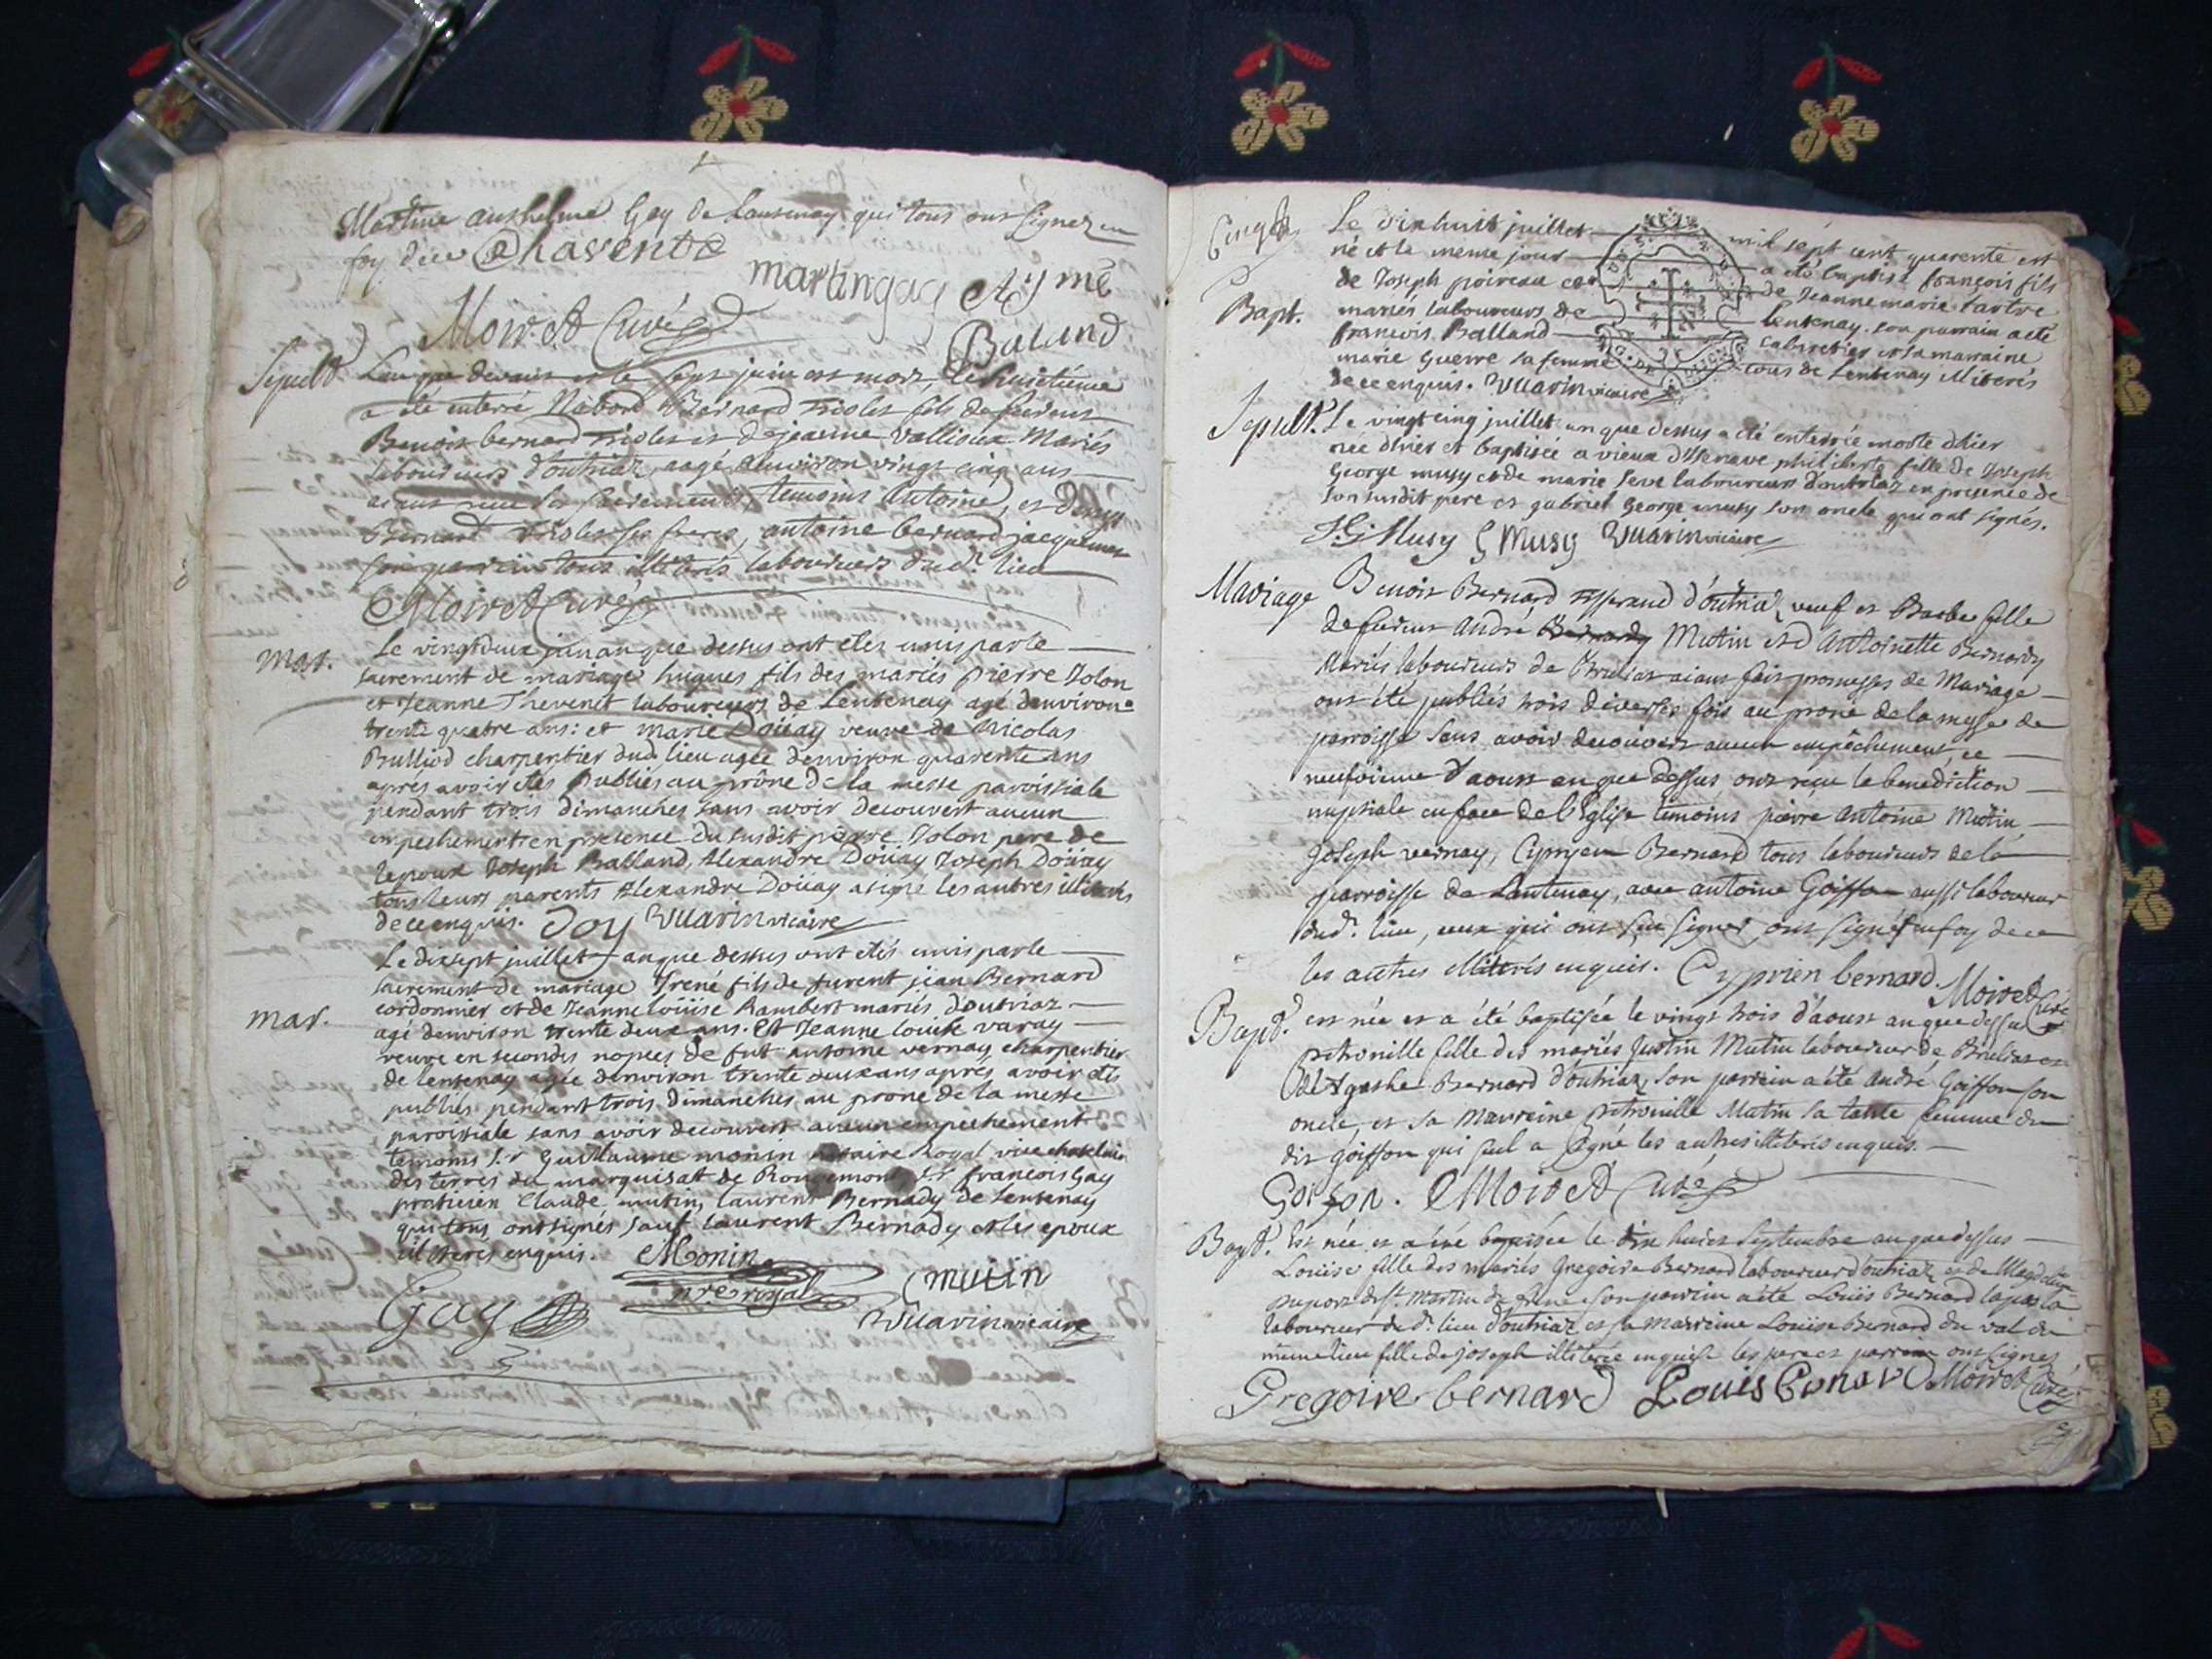 Martine anthelme Gay de Lantenay qui tous ont signez en
foy de ce Chavent
martin gay Aymé
Moiret Curé
Baland
Sepult.
L'an que devant et le sept juin est mort, le huictieme
a été enterré Nabord Bernard fils de feu
Benoit bernard et de jeanne Vallioux Mariés
laboureurs d'outriaz, aagé d'environ vingt cinq ans
aiant receu les sacrements, temoins Antoine, et
Bernard ses freres, antoine bernard
son parrain tous illiterés laboureurs dud. lieu
Moiret Curé
mar.
Le vingtdeux juin an que dessus ont etes unis par le
sacrement de mariage hugues fils des mariés pierre Jolon
et Jeanne Thevenet laboureurs de Lentenay agé denviron
trente quatre ans: et marie Doüay veuve de Nicolas
Bulliod charpentier dud. lieu agée denviron quarente ans
aprés avoir etés publiés au prône de la messe paroissiale
pendant trois dimanches sans avoir decouvert aucun
empechement en presence du susdit pierre Jolon pere de
lepoux Joseph Balland, Alexandre Doüay Joseph Doüay
tous leurs parents Alexandre Doüay a signé les autres illiterés
de ce enquis. Doy Vuarin vicaire
Le dixsept juillet an que dessus ont etés unis par le
sacrement de mariage Irené fils de furent jean Bernard
cordonnier et de Jeanne Loüise Rambert mariés doutriaz
mar.
agé denviron trente deux ans. Et Jeanne Louise varay
veuve en secondes nopces de fut antoine vernay charpentier
de lentenay agée denviron trente deux ans aprés avoir etés
publiés pendant trois dimanches au prone de la messe
paroissiale sans avoir decouvert aucun empechement
temoins s.r Guillaume monin notaire Royal vice chatelain
des terres du marquisat de Rougemont s.r françois Gay
praticien Claude mutin, laurent Bernady de Lentenay
qui tous ont signés sauf laurent Bernady et les epoux
illiteres enquis. Monin
nre royal
C mutin
Gay
Vuarin vicaire
Le dixhuit juillet mil sept cent quarente est
né et le meme jour a été baptisé françois fils
de Joseph poireau et de Jeanne marie tartre
Bapt.
mariés laboureurs de Lentenay. son parrain a eté
francois Balland cabaretier et sa marraine
marie Guerre sa femme tous de Lentenay illiterés
de ce enquis. Vuarin vicaire
Sepult.
Le vingt cinq juillet an que dessus a été enterrée morte dhier
née dhier et baptisée a vieux d'Isenave philiberte fille de Joseph
George musy et de marie Seve laboureurs doutriaz en presence de
son susdit pere et gabriel George musy son oncle qui ont signés.
J. G Musy G Musy Vuarin vicaire
Mariage
Benoit Bernard Tisserand d'outriaz veuf et Barbe fille
de André Mutin et d'Antoinette Bernardy
Mariés laboureurs de Brulias aiant fait promesses de Mariage
ont été publiés trois diverses fois au prone de la messe de
parroisse sans avoir decouvert aucun empêchement, ce
neufvieme d'aoust an que dessus ont receu la benediction
nuptiale en face de l'Eglise temoins pierre Antoine Mutin
Joseph vernay, Cypryen Bernard tous laboureurs de la
parroisse de Lantenay, avec antoine Goiffon aussi laboureur
dud. lieu, ceux qui ont sçu signer, ont signé en foy de ce
les autres illiterés enquis. Cyprien bernard. Moiret Curé
Bapt.
est née et a été baptisée le vingt trois d'aoust an que dessu
petronille fille des mariés Justin Mutin laboureur de Brulias et
d'Agathe Bernard d'outriaz, son parrein a été andré Goiffon son
oncle, et sa marreine petronille Mutin sa tante femme du
dit goiffon qui seul a signé les autres illiteris enquis.
Goifon. Moiret Curé
Bapt.
Est née et a été baptisée le dix huict Septembre an que dessus
Loüise fille des mariés Gregoire Bernard laboureur d'outriaz et de Magdelaine
Dupont de St. Martin du frêne son parrein a été Louis Bernard
laboureur du d. lieu d'outriaz et sa marreine Loüise Bernard du val du
meme lieu fille de joseph illiterée enquise les pere et parrein ont signes
Gregoire bernard Louis Bernard Moiret Curé